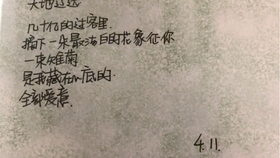 天地辽远
几十亿的过客里
摘下一朵最洁白的花象征你
一束雏菊
是我藏在心底的
全部爱意
4.11.